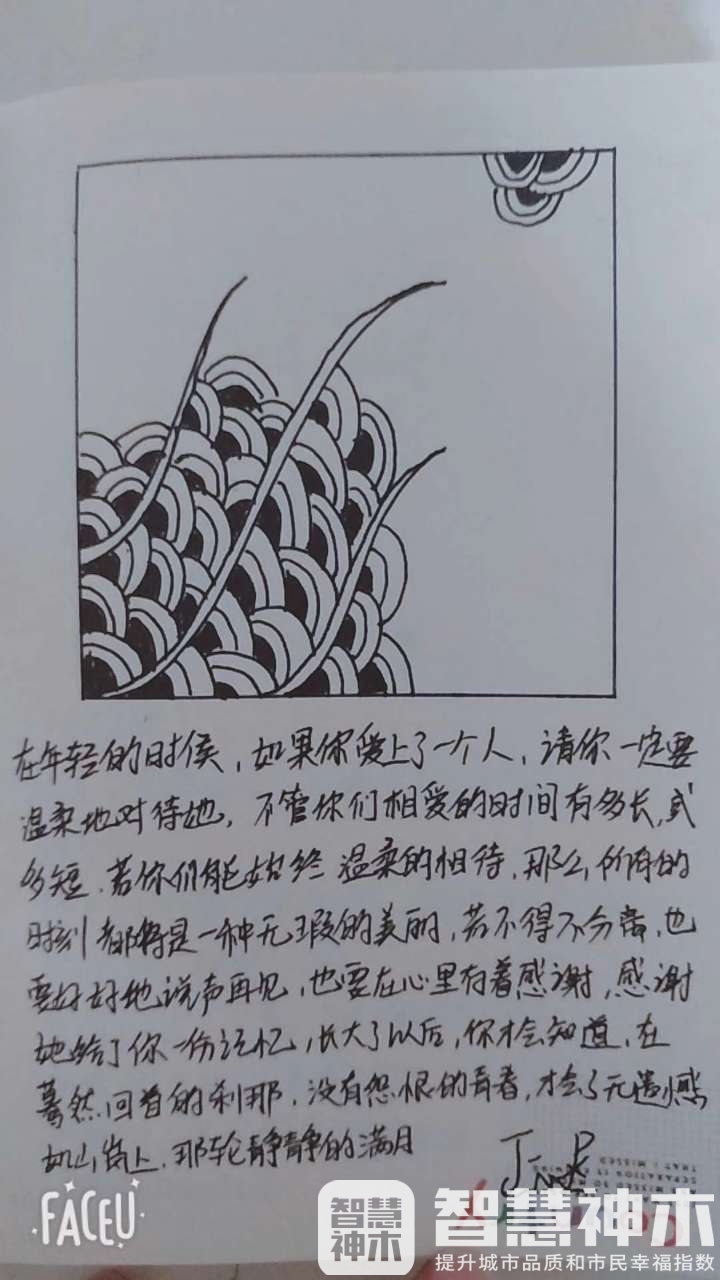 在年轻的时候，如果你爱上了一个人，请你一定要
温柔地对待她，不管你们相爱的时间有多长，或
多短，若你们能始终温柔的相待，那么，所有的
时刻都将是一种无瑕的美丽，若不得不分离，也
要好好地说声再见，也要在心里有着感谢，感谢
她给了你一份记忆，长大了以后，你才会知道，在
蓦然回首的刹那，没有怨恨的青春，才会了无遗憾
如山岗上，那轮静静的满月
FACEU
智慧神木
智慧神木
提升城市品质和市民幸福指数